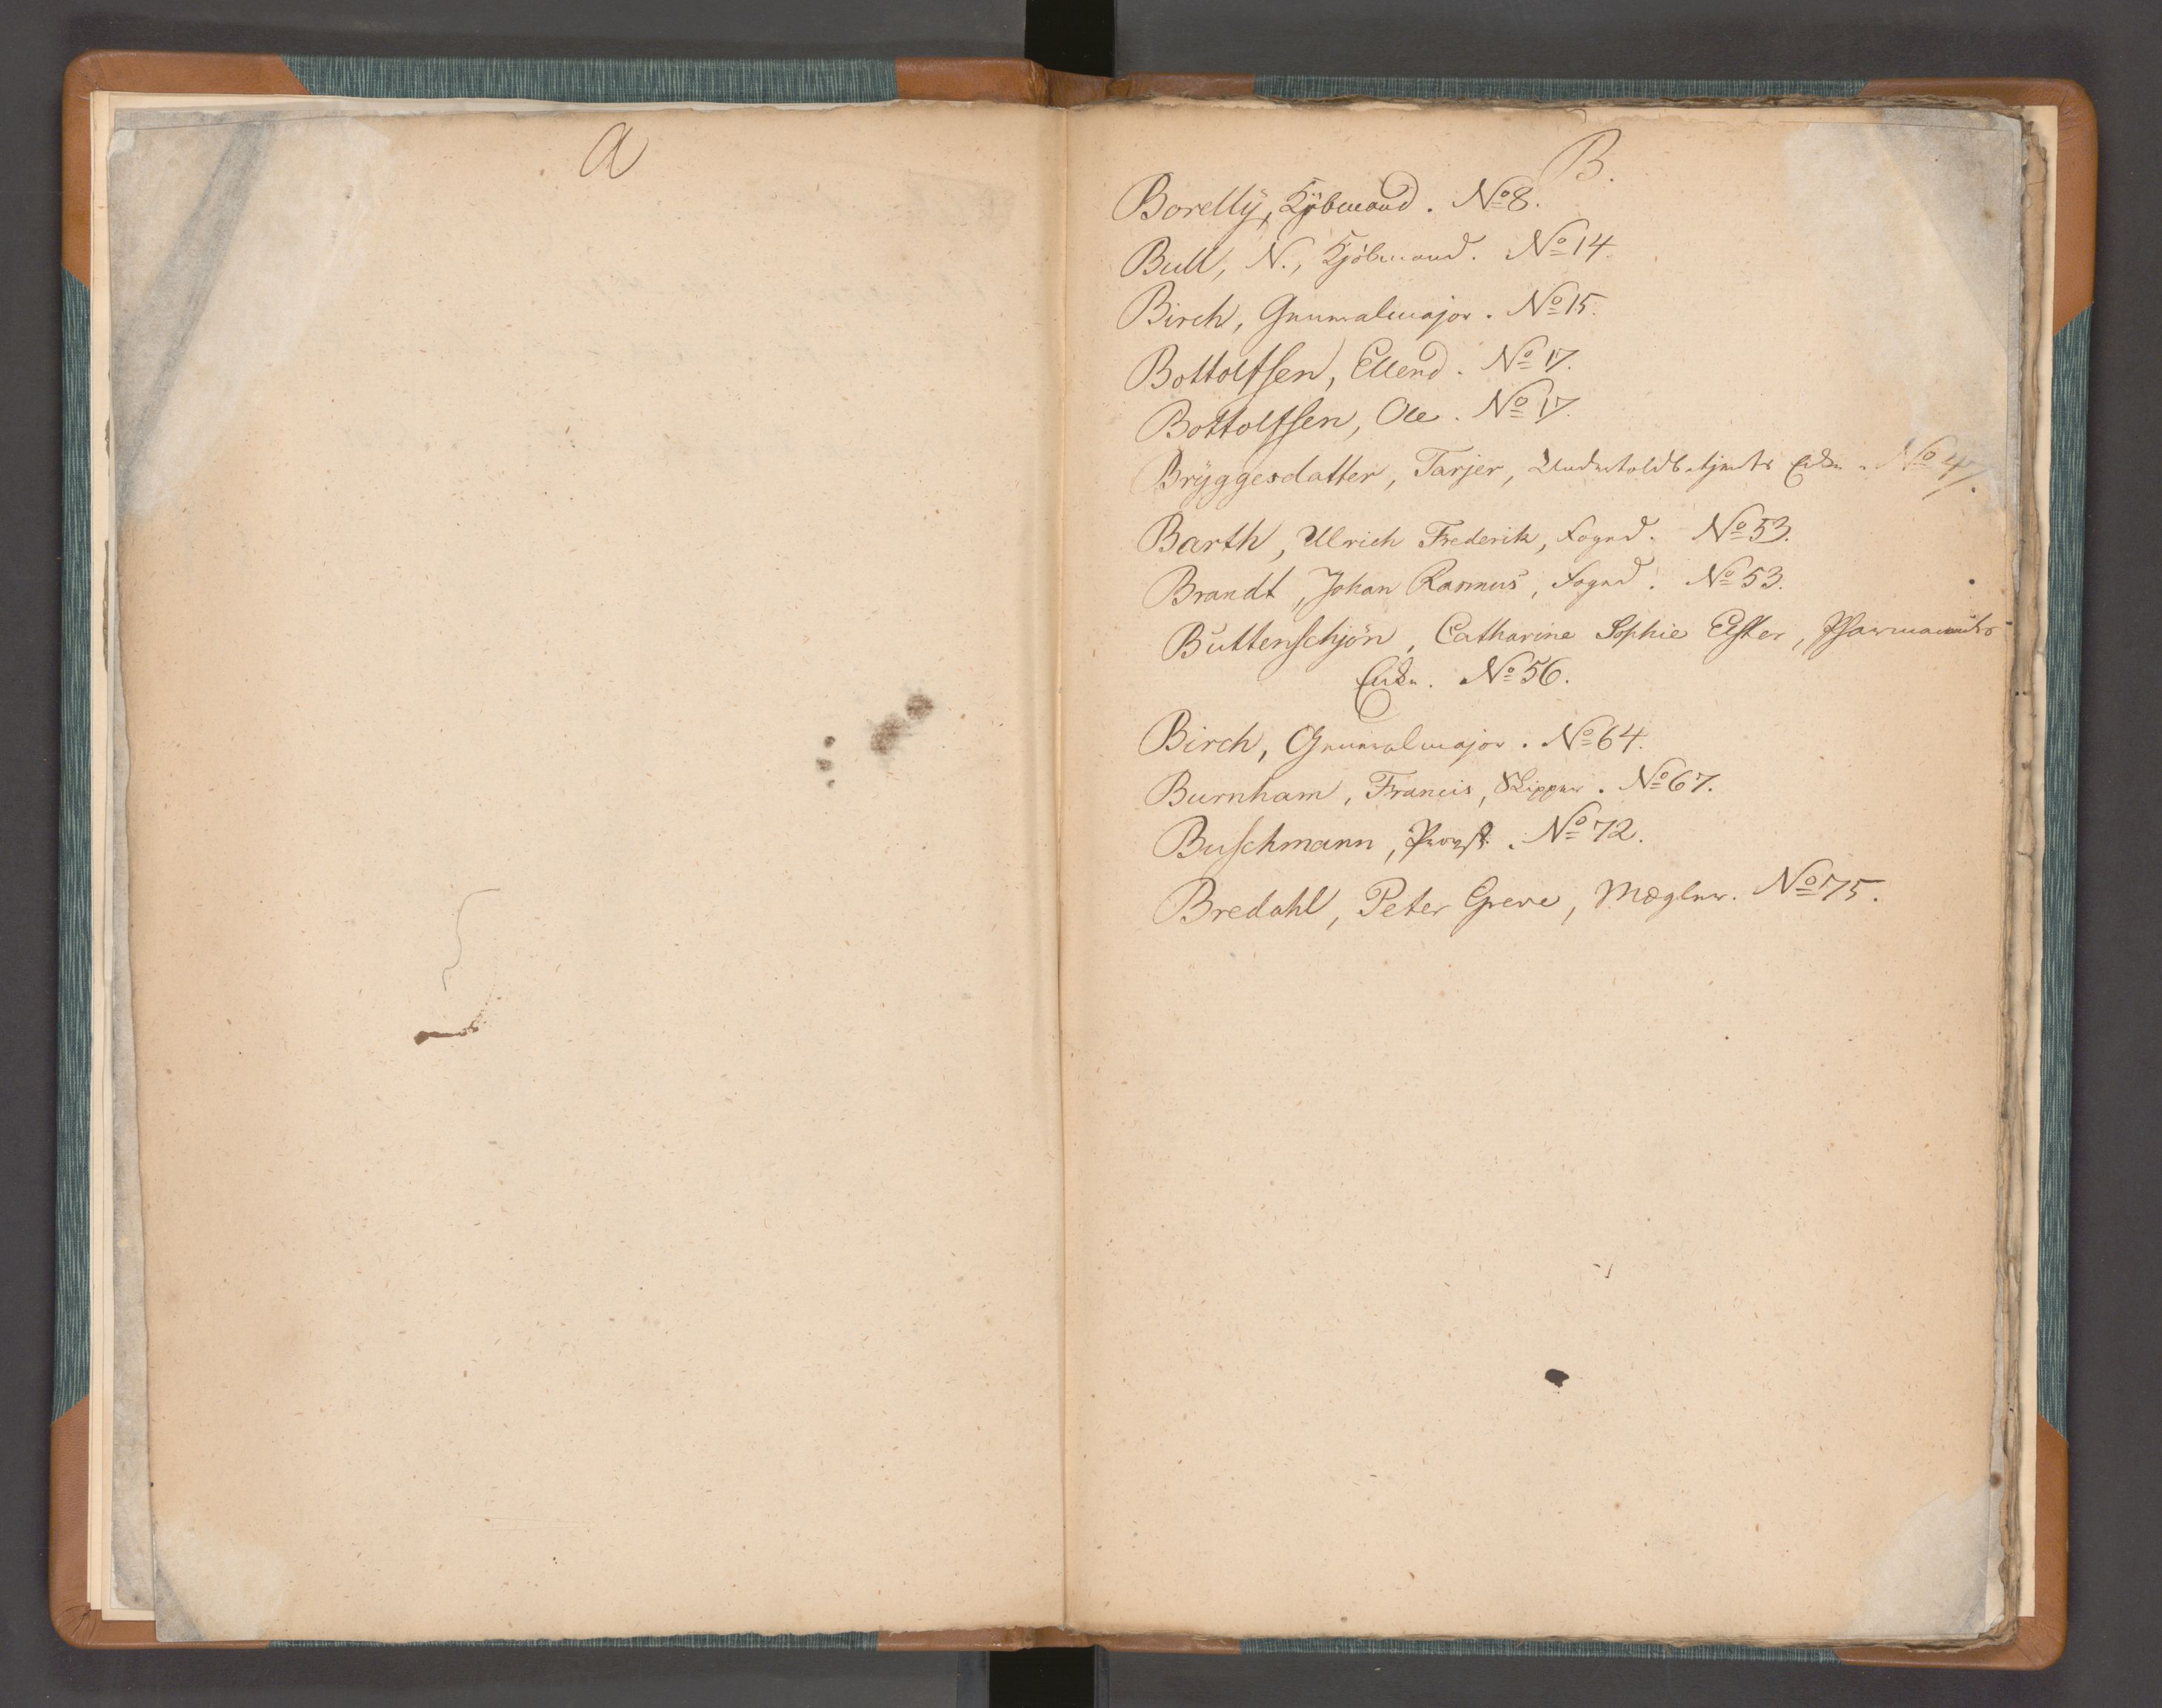 A
B.
Borelly, Kjöbmand. No 8.
Bull, N., Kjöbmand. No 14.
Birch, Generalmajor. No 15.
Bottolfsen, Ellend. No 17.
Bottolfsen, Ole. No 17.
Bryggesdatter, Tarjer, Undertoldbetjents Enke. No 47.
Barth, Ulrich Frederik, Foged. No 53.
Brandt, Johan Rasmus, Foged. No 53.
Buttenschjön, Catharine Sophie Ester,
Enke. No 56.
Birch, Generalmajor. No 64.
Burnham, Francis, Skipper. No 67.
Buschmann, Provst. No 72.
Bredahl, Peter Greve, Mægler. No 75.